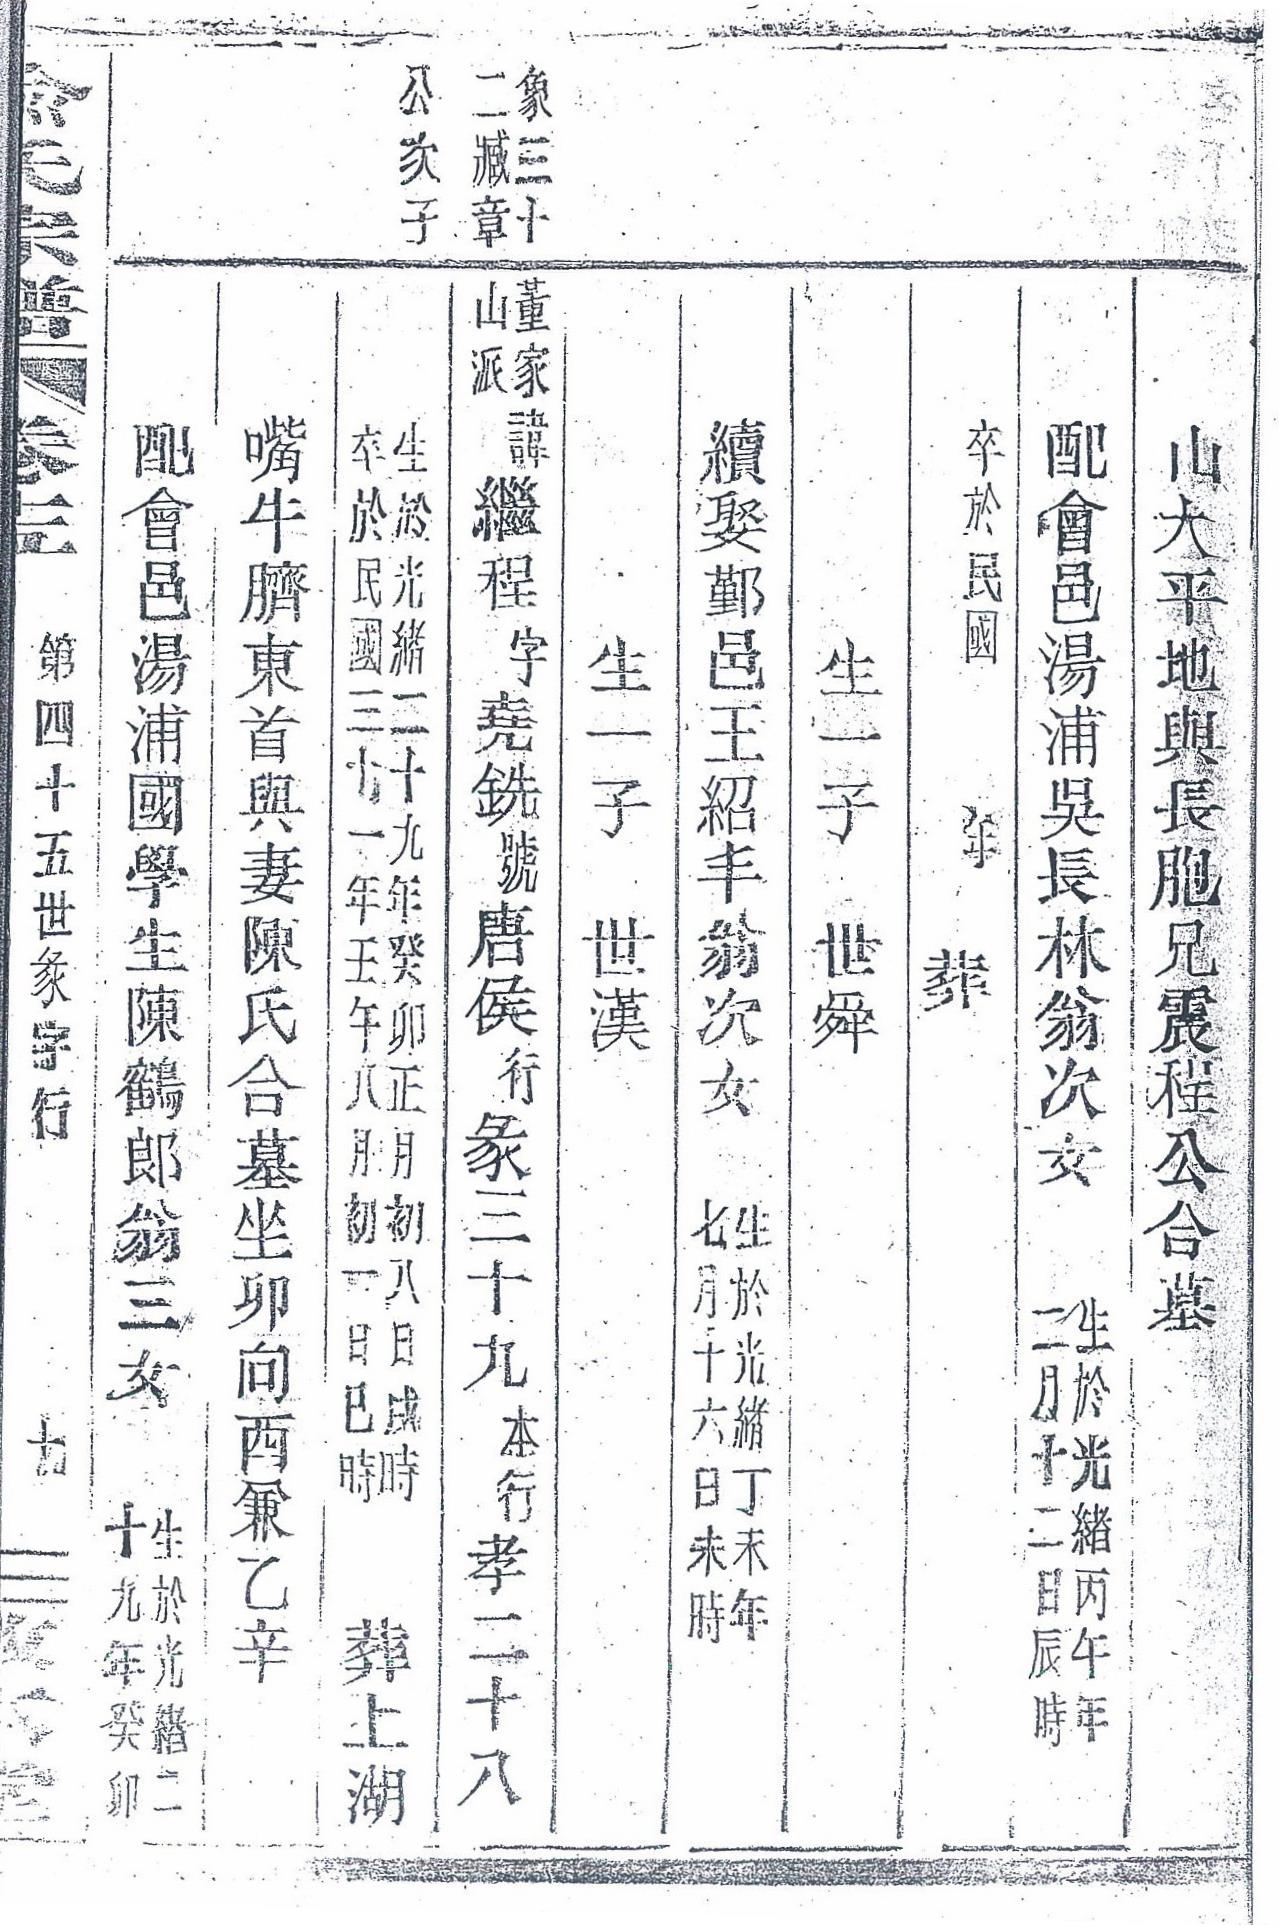 山大平地與長胞兄震程公合墓
配會邑湯浦吳長林翁次女
生於光緒丙午年
二月十二日辰時
卒於民國 年 葬
生一子 世舜
續娶鄞邑王紹丰翁次女
生於光緒丁未年
七月十六日未時
生一子 世漢
象三十
二臧章
公次子
董家
山派
諱繼程字堯銑號唐侯行彖三十九本行孝二十八
生於光緒二十九年癸卯正月初八日戌時
卒於民國三十一年壬午八月初一日巳時
葬上湖
嘴牛臍東首與妻陳氏合墓坐卯向酉兼乙辛
配會邑湯浦國學生陳鶴郎翁三女
生於光緒二
十九年癸卯
氏宗譜 卷三 第四十五世彖字行